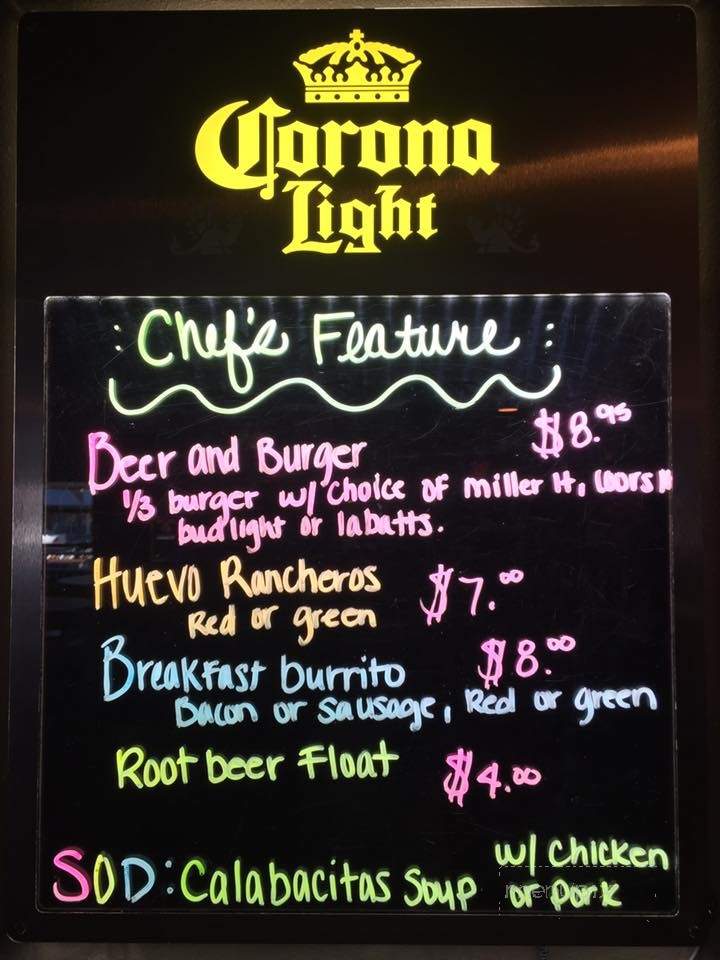 Corona
Light
: Chef's Feature :
Beer and Burger $8.95
1/3 burger w/ Choice of miller lt, Coors lt
bud light or labatts.
Huevo Rancheros $7.00
Red or green
Breakfast burrito $8.00
Bacon or sausage, Red or green
Root beer Float $4.00
SOD: Calabacitas Soup w/ Chicken
or pork